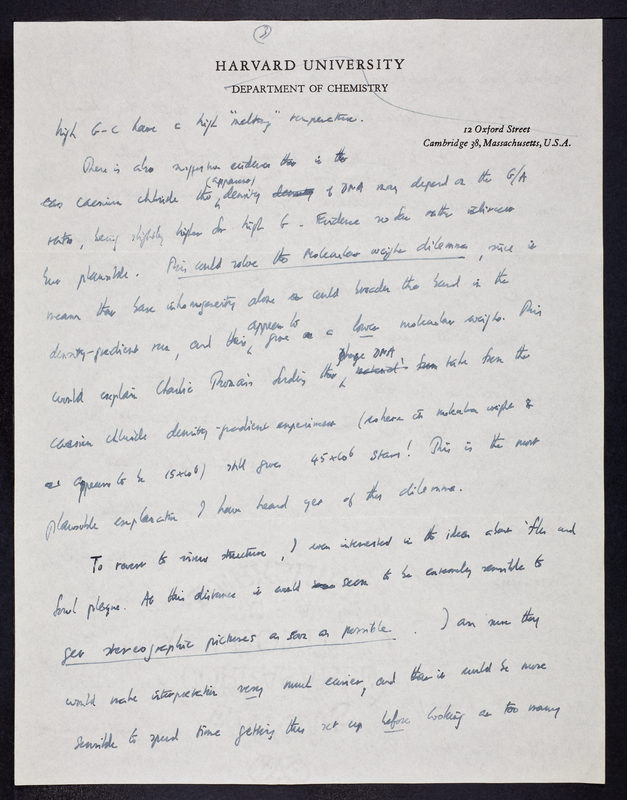 3
HARVARD UNIVERSITY
DEPARTMENT OF CHEMISTRY
12 Oxford Street
Cambridge 38, Massachusetts, U.S.A.
high G-C have a high "melting" temperature.
There is also suggestive evidence that in the
caesium chloride the (apparent) density of DNA may depend on the G/A
ratio, being slightly higher for high G. Evidence so far rather
but plausible. This could solve the molecular weight dilemma, since it
means that base inhomogeneity alone could broaden the band in the
density-gradient run, and thus appear to give a lower molecular weight. This
would explain Charlie Thomas's finding that phage DNA taken from the
caesium chloride density-gradient experiment (where its molecular weight
appears to be 15x10⁶) still gives 45x10⁶ stars! This is the most
plausible explanation I have heard yet of this dilemma.
To revert to virus structure, I was interested in the ideas about 'flu and
fowl plague. At this distance it would seem to be extremely sensible to
get stereographic pictures as soon as possible. I am sure they
would make interpretation very much easier, and that it would be more
sensible to spend time getting this set up before looking at too many